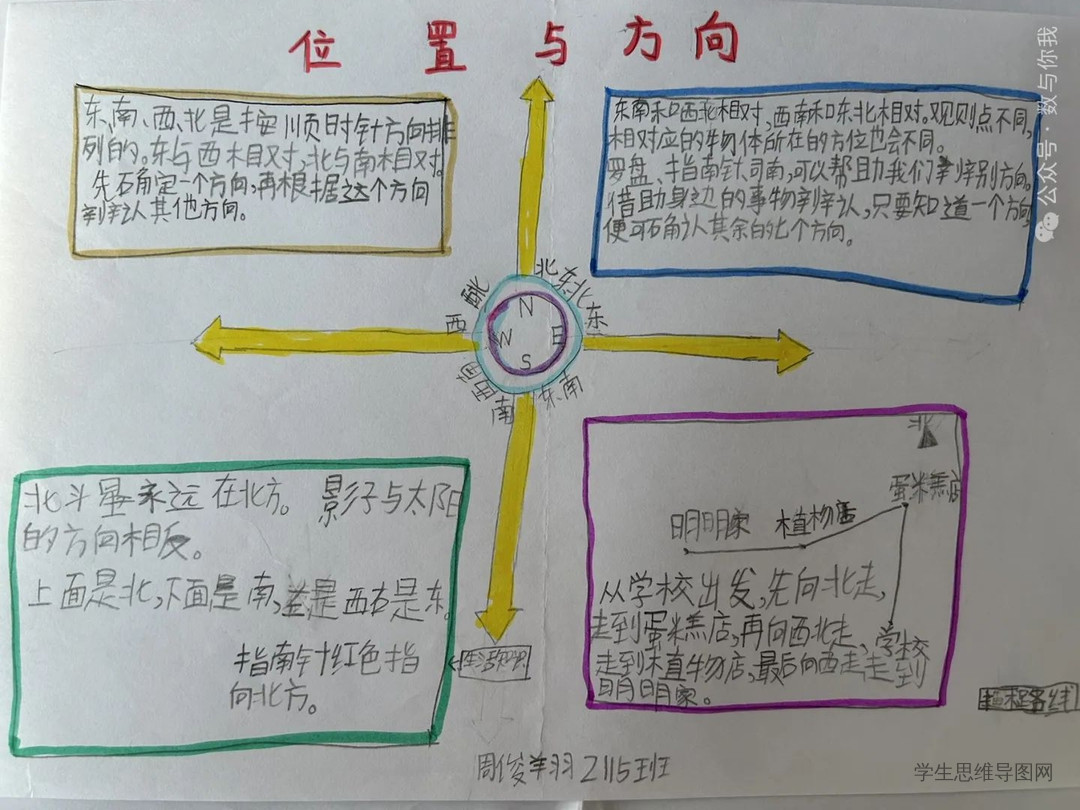 位置与方向
东、南、西、北是按顺时针方向排
列的。东与西相对,北与南相对。
先确定一个方向,再根据这个方向
辨认其他方向。
东南和西北相对,西南和东北相对。观则点不同,
相对应的物体所在的方位也会不同。
罗盘、指南针、司南,可以帮助我们辨别方向。
借助身边的事物辨认,只要知道一个方向,
便可确认其余的七个方向。
北
东北
东
东南
南
西南
西
西北
N
E
S
W
北斗星永远在北方。 影子与太阳
的方向相反。
上面是北,下面是南,左是西右是东。
指南针红色指
向北方。
生活知识
北
蛋糕店
明明家 植物店
学校
从学校出发,先向北走,
走到蛋糕店,再向西北走,
走到植物店,最后向西走走到
明明家。
周俊羊羽 2115班
公众号·数与你我
学生思维导图网